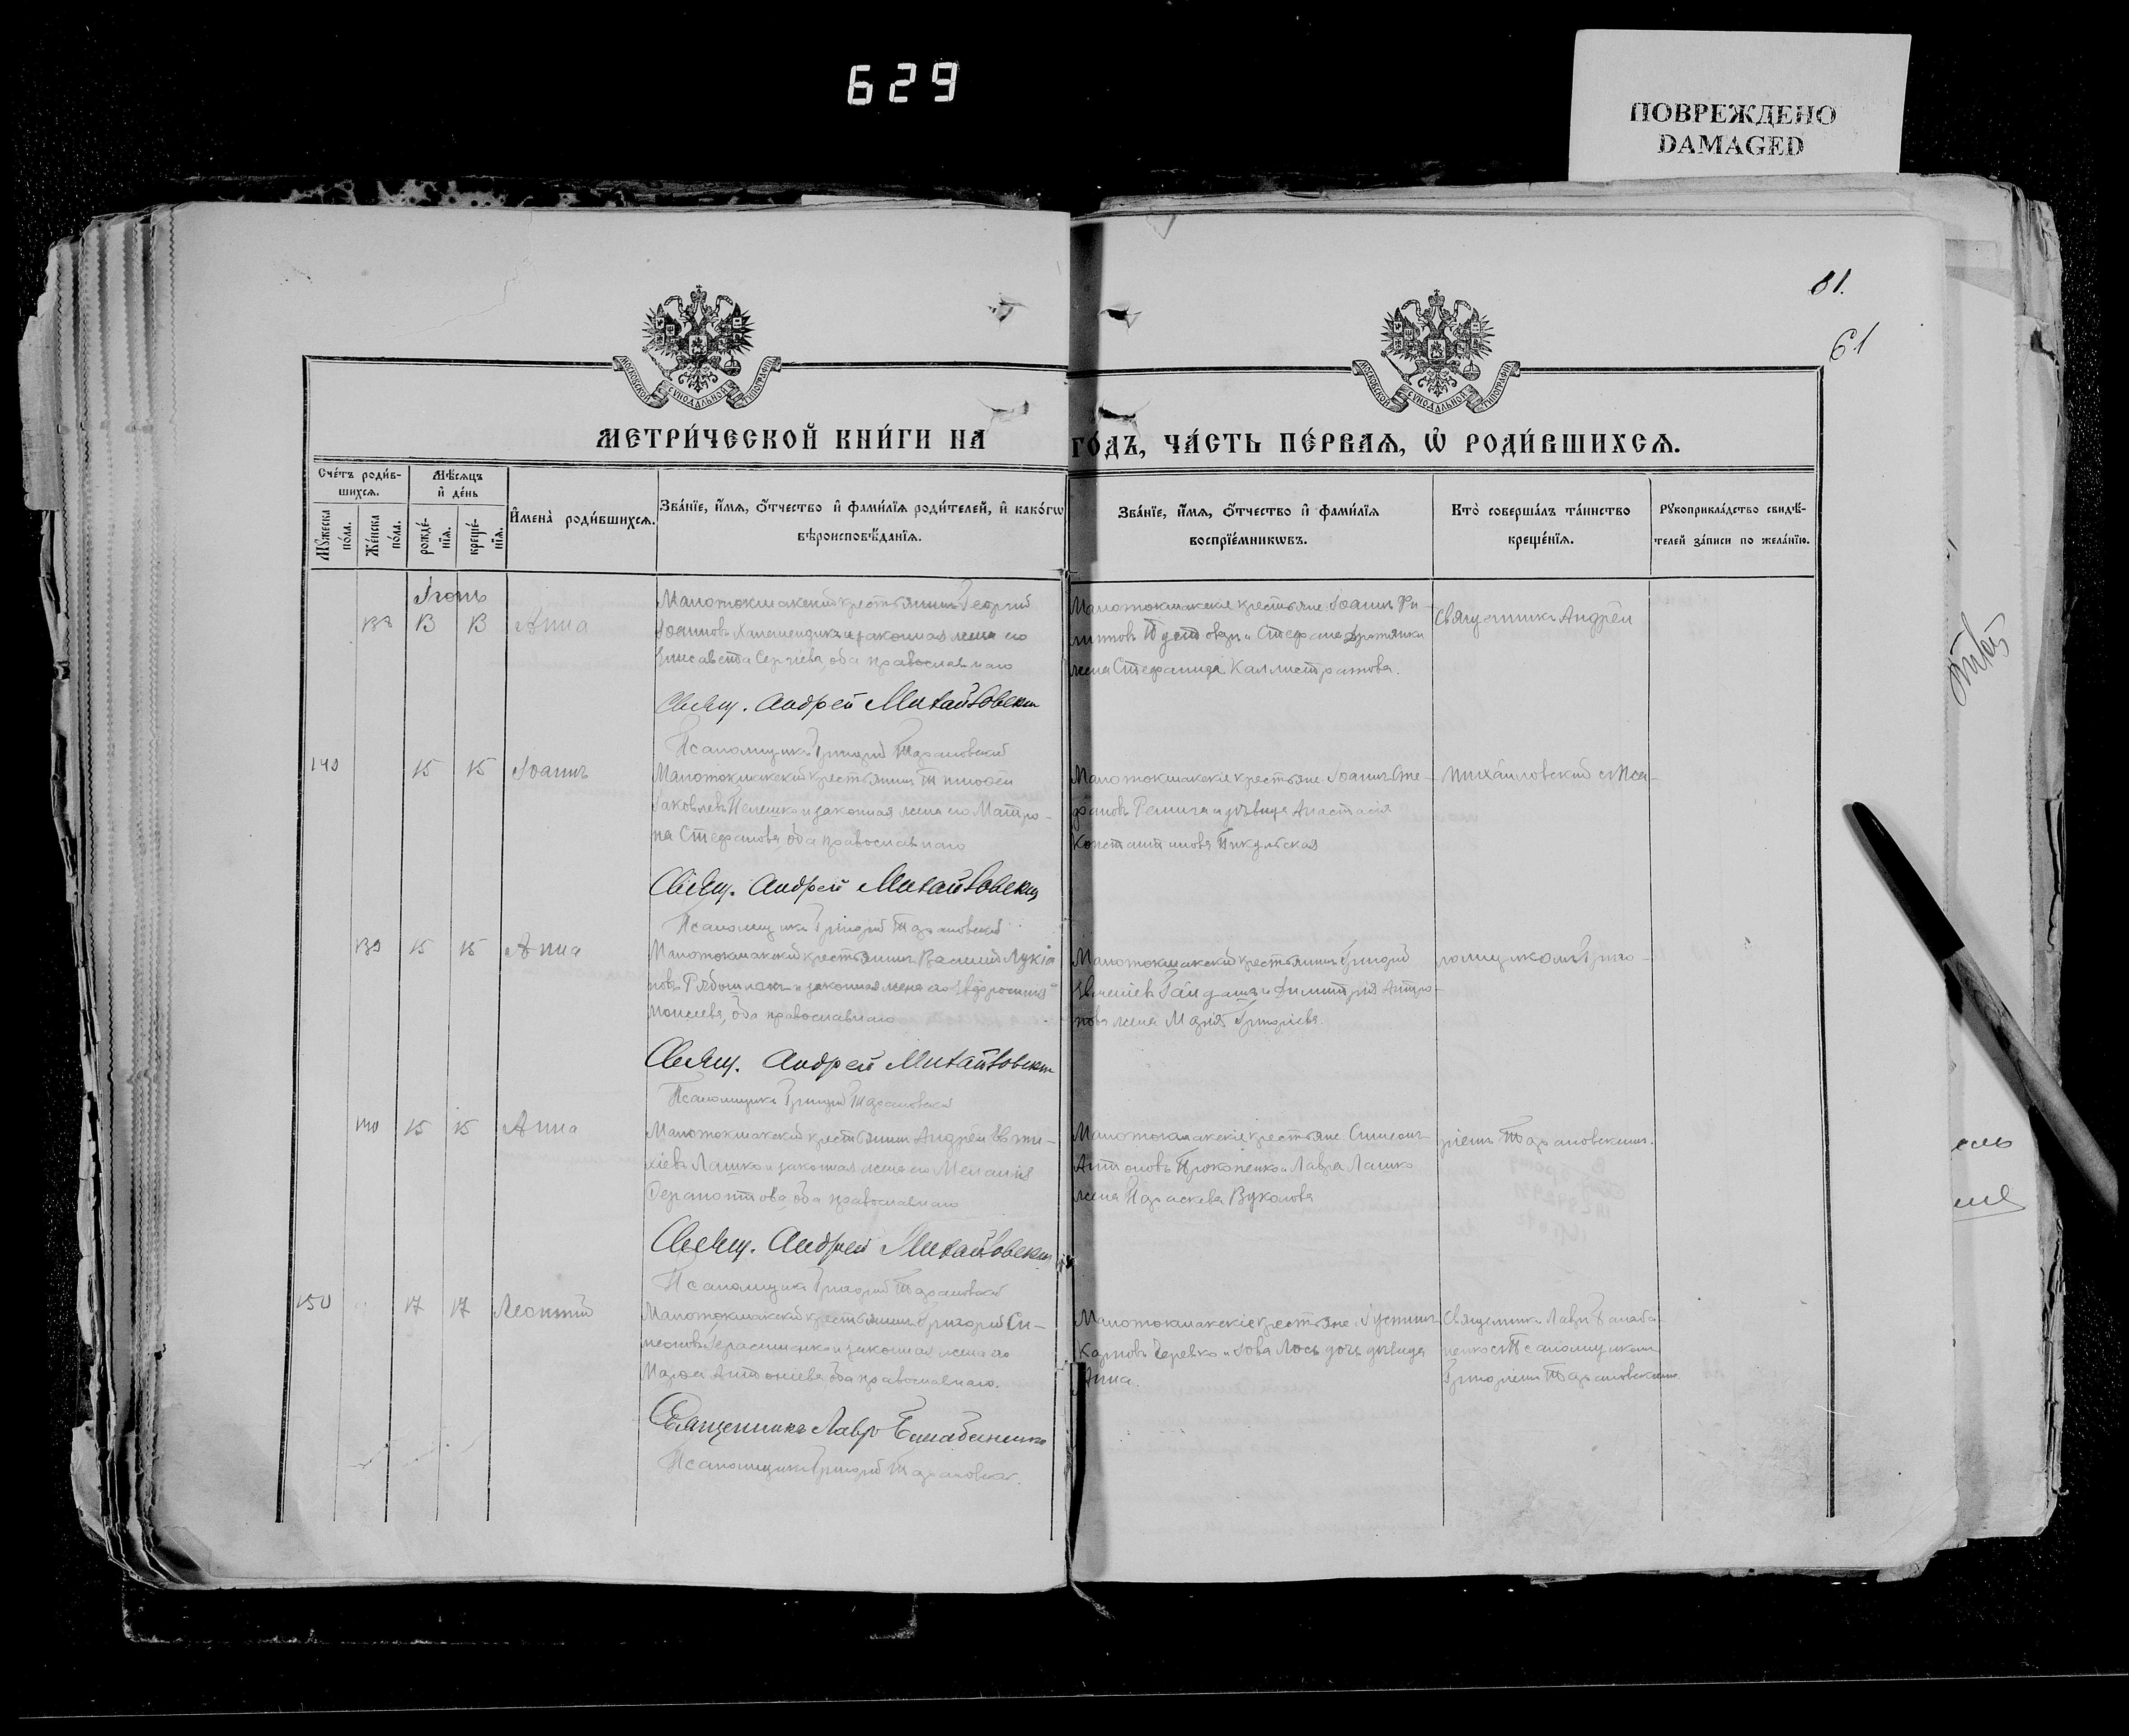 629
ПОВРЕЖДЕНО
DAMAGED
61.
61
МОСКОВСКОЙ СѴНОДАЛЬНОЙ ТИПОГРАФІИ
МОСКОВСКОЙ СѴНОДАЛЬНОЙ ТИПОГРАФІИ
МЕТРИ́ЧЕСКОЙ КНИ́ГИ НА ГО́ДЪ, ЧА́СТЬ ПЕ́РВАЯ, Ѡ҆ РОДИ́ВШИХСЯ.
Сче́тъ роди́в-
шихся.
Мѣ́сяцъ
и҆ де́нь
Мꙋ́жеска
по́ла.
Же́нска
по́ла.
рожде́-
нїя.
креще́-
нїя.
И҆мена̀ роди́вшихся.
Зва́нїе, и҆́мя, ѻ҆́тчество и҆ фами́лїя роди́телей, и҆ како́гѡ
вѣроисповѣ́данїя.
Зва́нїе, и҆́мя, ѻ҆́тчество и҆ фами́лїя
воспрїе́мникѡвъ.
Кто̀ соверша́лъ та́инство
креще́нїя.
Рꙋкоприкла́дство свидѣ́-
телей за́писи по жела́нїю.
Іюнь
13 13 Анна
Малотокмакскій крестьянинъ Георгій
Іоанновъ и законная жена его
Елисавета Сергіева, оба православнаго
Свящ. Андрей Михайловскій
Псаломщикъ Григорій Тарановскій
Малотокмакскіе крестьяне: Іоаннъ Фи-
липповъ и Стефана
жена Стефанида Каллистратова.
Священникъ Андрей
149 15 15 Іоаннъ
Малотокмакскій крестьянинъ Тимофей
Іаковлевъ Пелешко и законная жена его Матро-
на Стефанова, оба православнаго
Свящ. Андрей Михайловскій
Псаломщикъ Григорій Тарановскій
Малотокмакскіе крестьяне: Іоаннъ Сте-
фановъ и дѣвица Анастасія
Константинова Пикульская
Михайловскій съ Пса-
139 15 15 Анна
Малотокмакскій крестьянинъ Василій Лукіа
новъ и законная жена его Евфросинія
Моисеева, оба православнаго
Свящ. Андрей Михайловскій
Псаломщикъ Григорій Тарановскій
Малотокмакскій крестьянинъ Григорій
и Димитрія Антро-
пова жена Марія Григоріева.
ломщикомъ Григо-
140 15 15 Анна
Малотокмакскій крестьянинъ Андрей Евти-
хіевъ Лашко и законная жена его Меланія
Ферапонтова, оба православнаго
Свящ. Андрей Михайловскій
Псаломщикъ Григорій Тарановскій
Малотокмакскіе крестьяне: Симеонъ
Антоновъ Прокопенко и Лавра Лашко
жена Параскева Вуколова
ріемъ Тарановскимъ.
150 17 17 Леонтій
Малотокмакскій крестьянинъ Григорій Си-
меоновъ Герасименко и законная жена его
Марфа Антоніева, оба православнаго.
Священникъ Лавръ Балабаненко
Псаломщикъ Григорій Тарановскій.
Малотокмакскіе крестьяне: Іустинъ
Карповъ Черевко и Іова Лось дочь дѣвица
Анна.
Священникъ Лавръ Балаба-
ненко съ Псаломщикомъ
Григоріемъ Тарановскимъ.